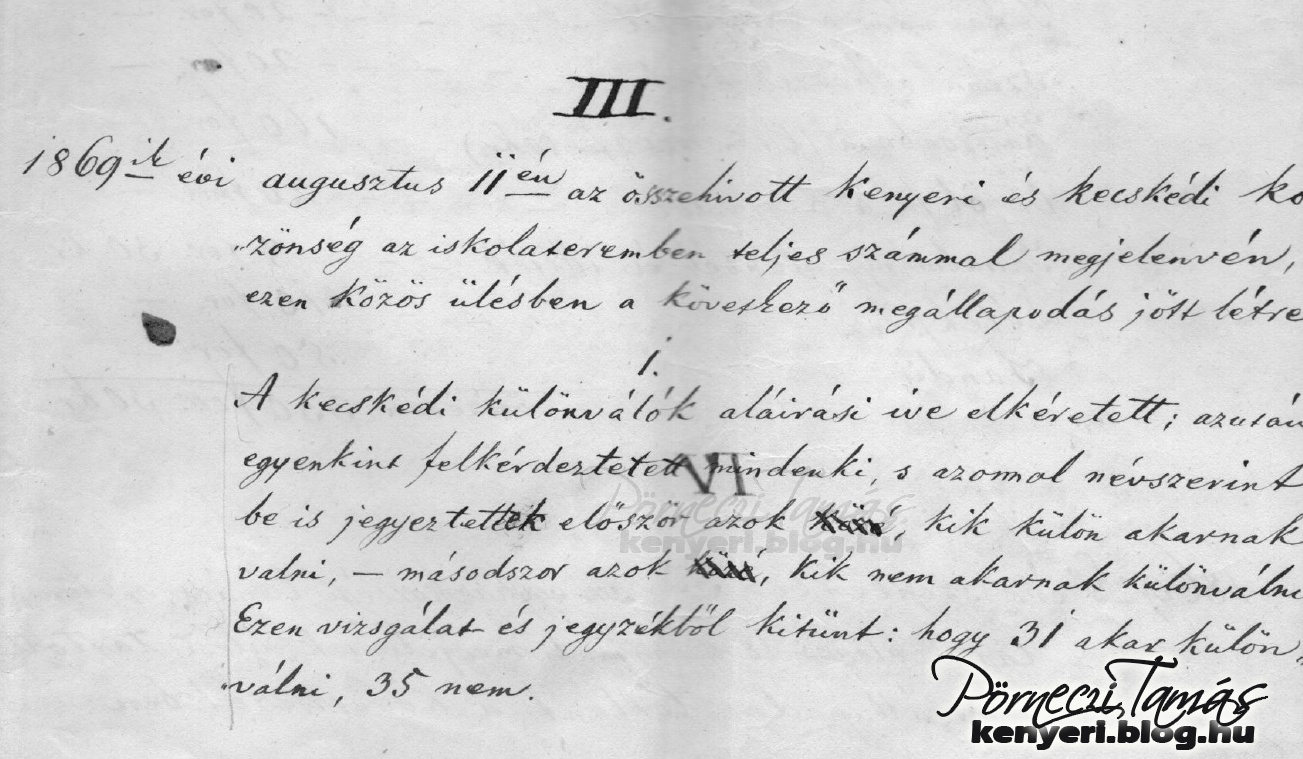 III.
1869ik évi augusztus 11én az összehivott Kenyeri és kecskédi kö
zönség az iskolateremben teljes számmal megjelenvén,
ezen közös ülésben a következő megállapodás jött létre
1.
A kecskédi különválók aláirási ive elkéretett; azután
egyenkint felkérdeztetett mindenki, s azonnal névszerint
VI
be is jegyeztettek először azok, kik külön akarnak
valni, — másodszor azok, kik nem akarnak különválni
Ezen vizsgálat és jegyzékből kitünt: hogy 31 akar külön„
válni, 35 nem.
Pörneczi Tamás
kenyeri.blog.hu
Pörneczi Tamás
kenyeri.blog.hu